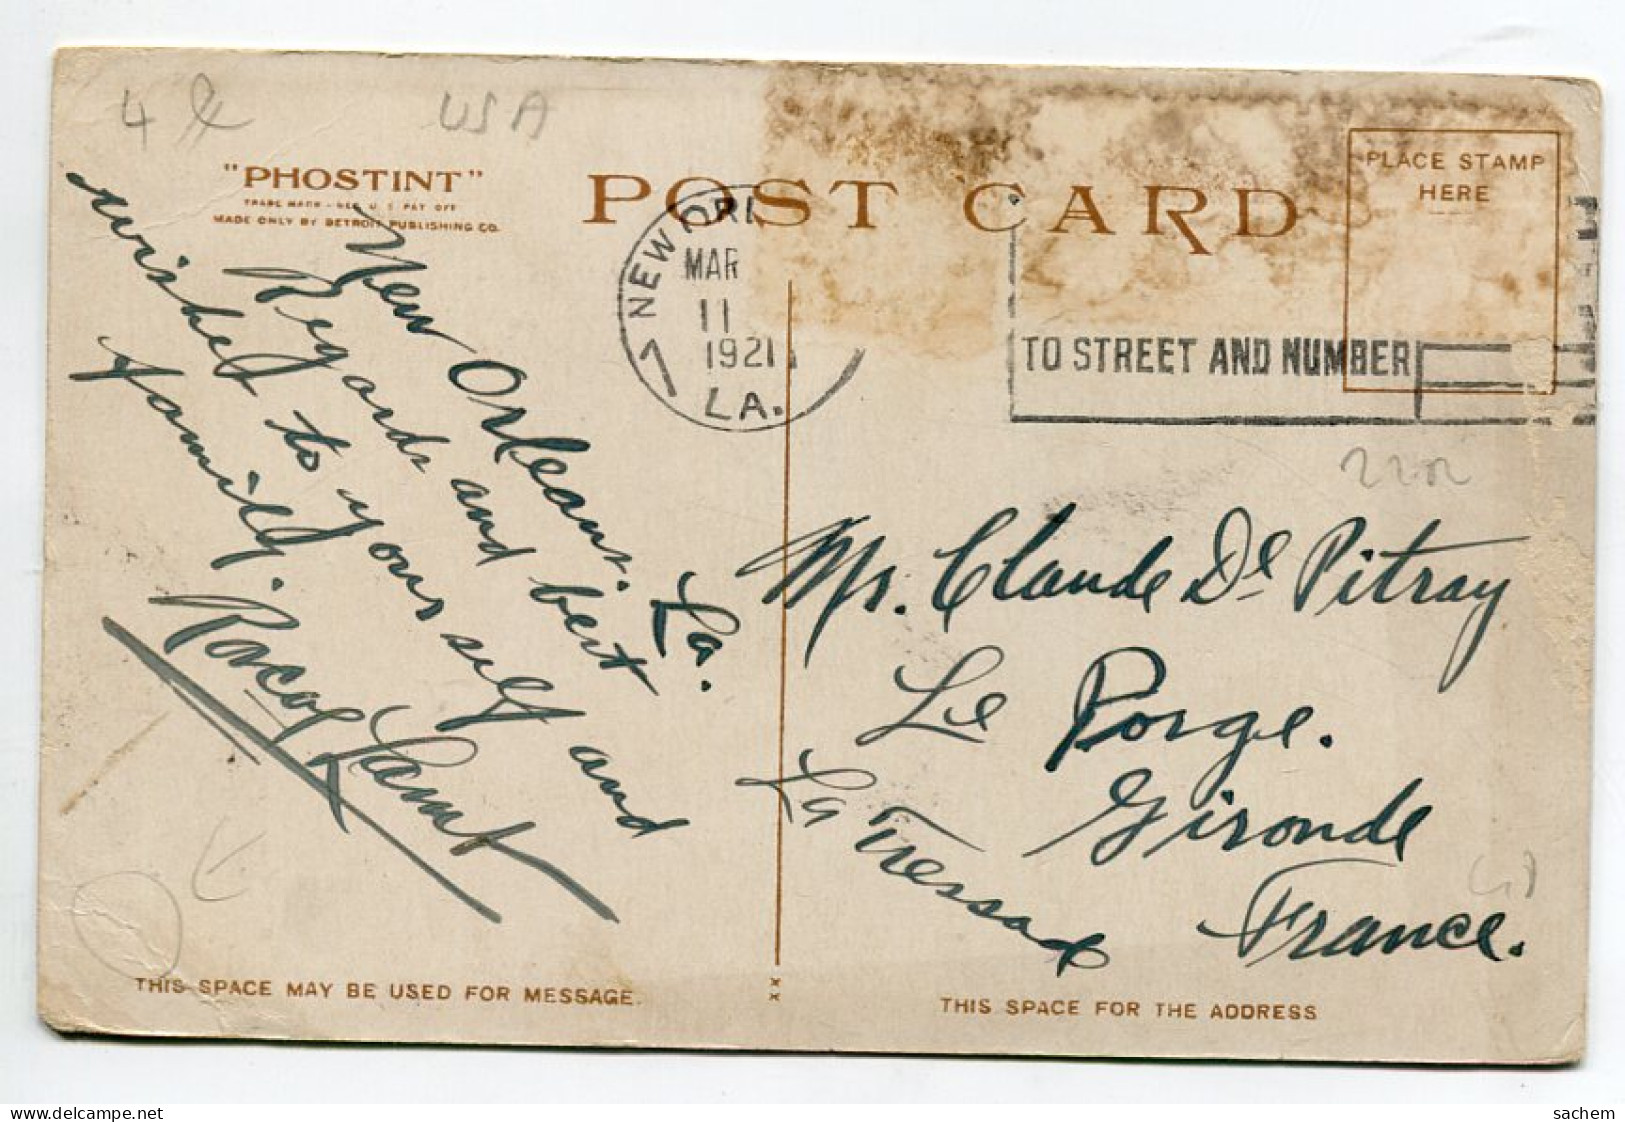 4 €
USA
"PHOSTINT"
TRADE MARK - REG U. S. PAT OFF
MADE ONLY BY DETROIT PUBLISHING CO.
POST CARD
PLACE STAMP
HERE
NEW ORL
MAR
11
1921
LA.
TO STREET AND NUMBER
New Orleans. La.
Regards and best
wishes to your self and
family.
Roscoe Lamb
Mr. Claude De Pitray
Le Porge.
Gironde
La Tressac
France.
THIS SPACE MAY BE USED FOR MESSAGE.
THIS SPACE FOR THE ADDRESS
sachem